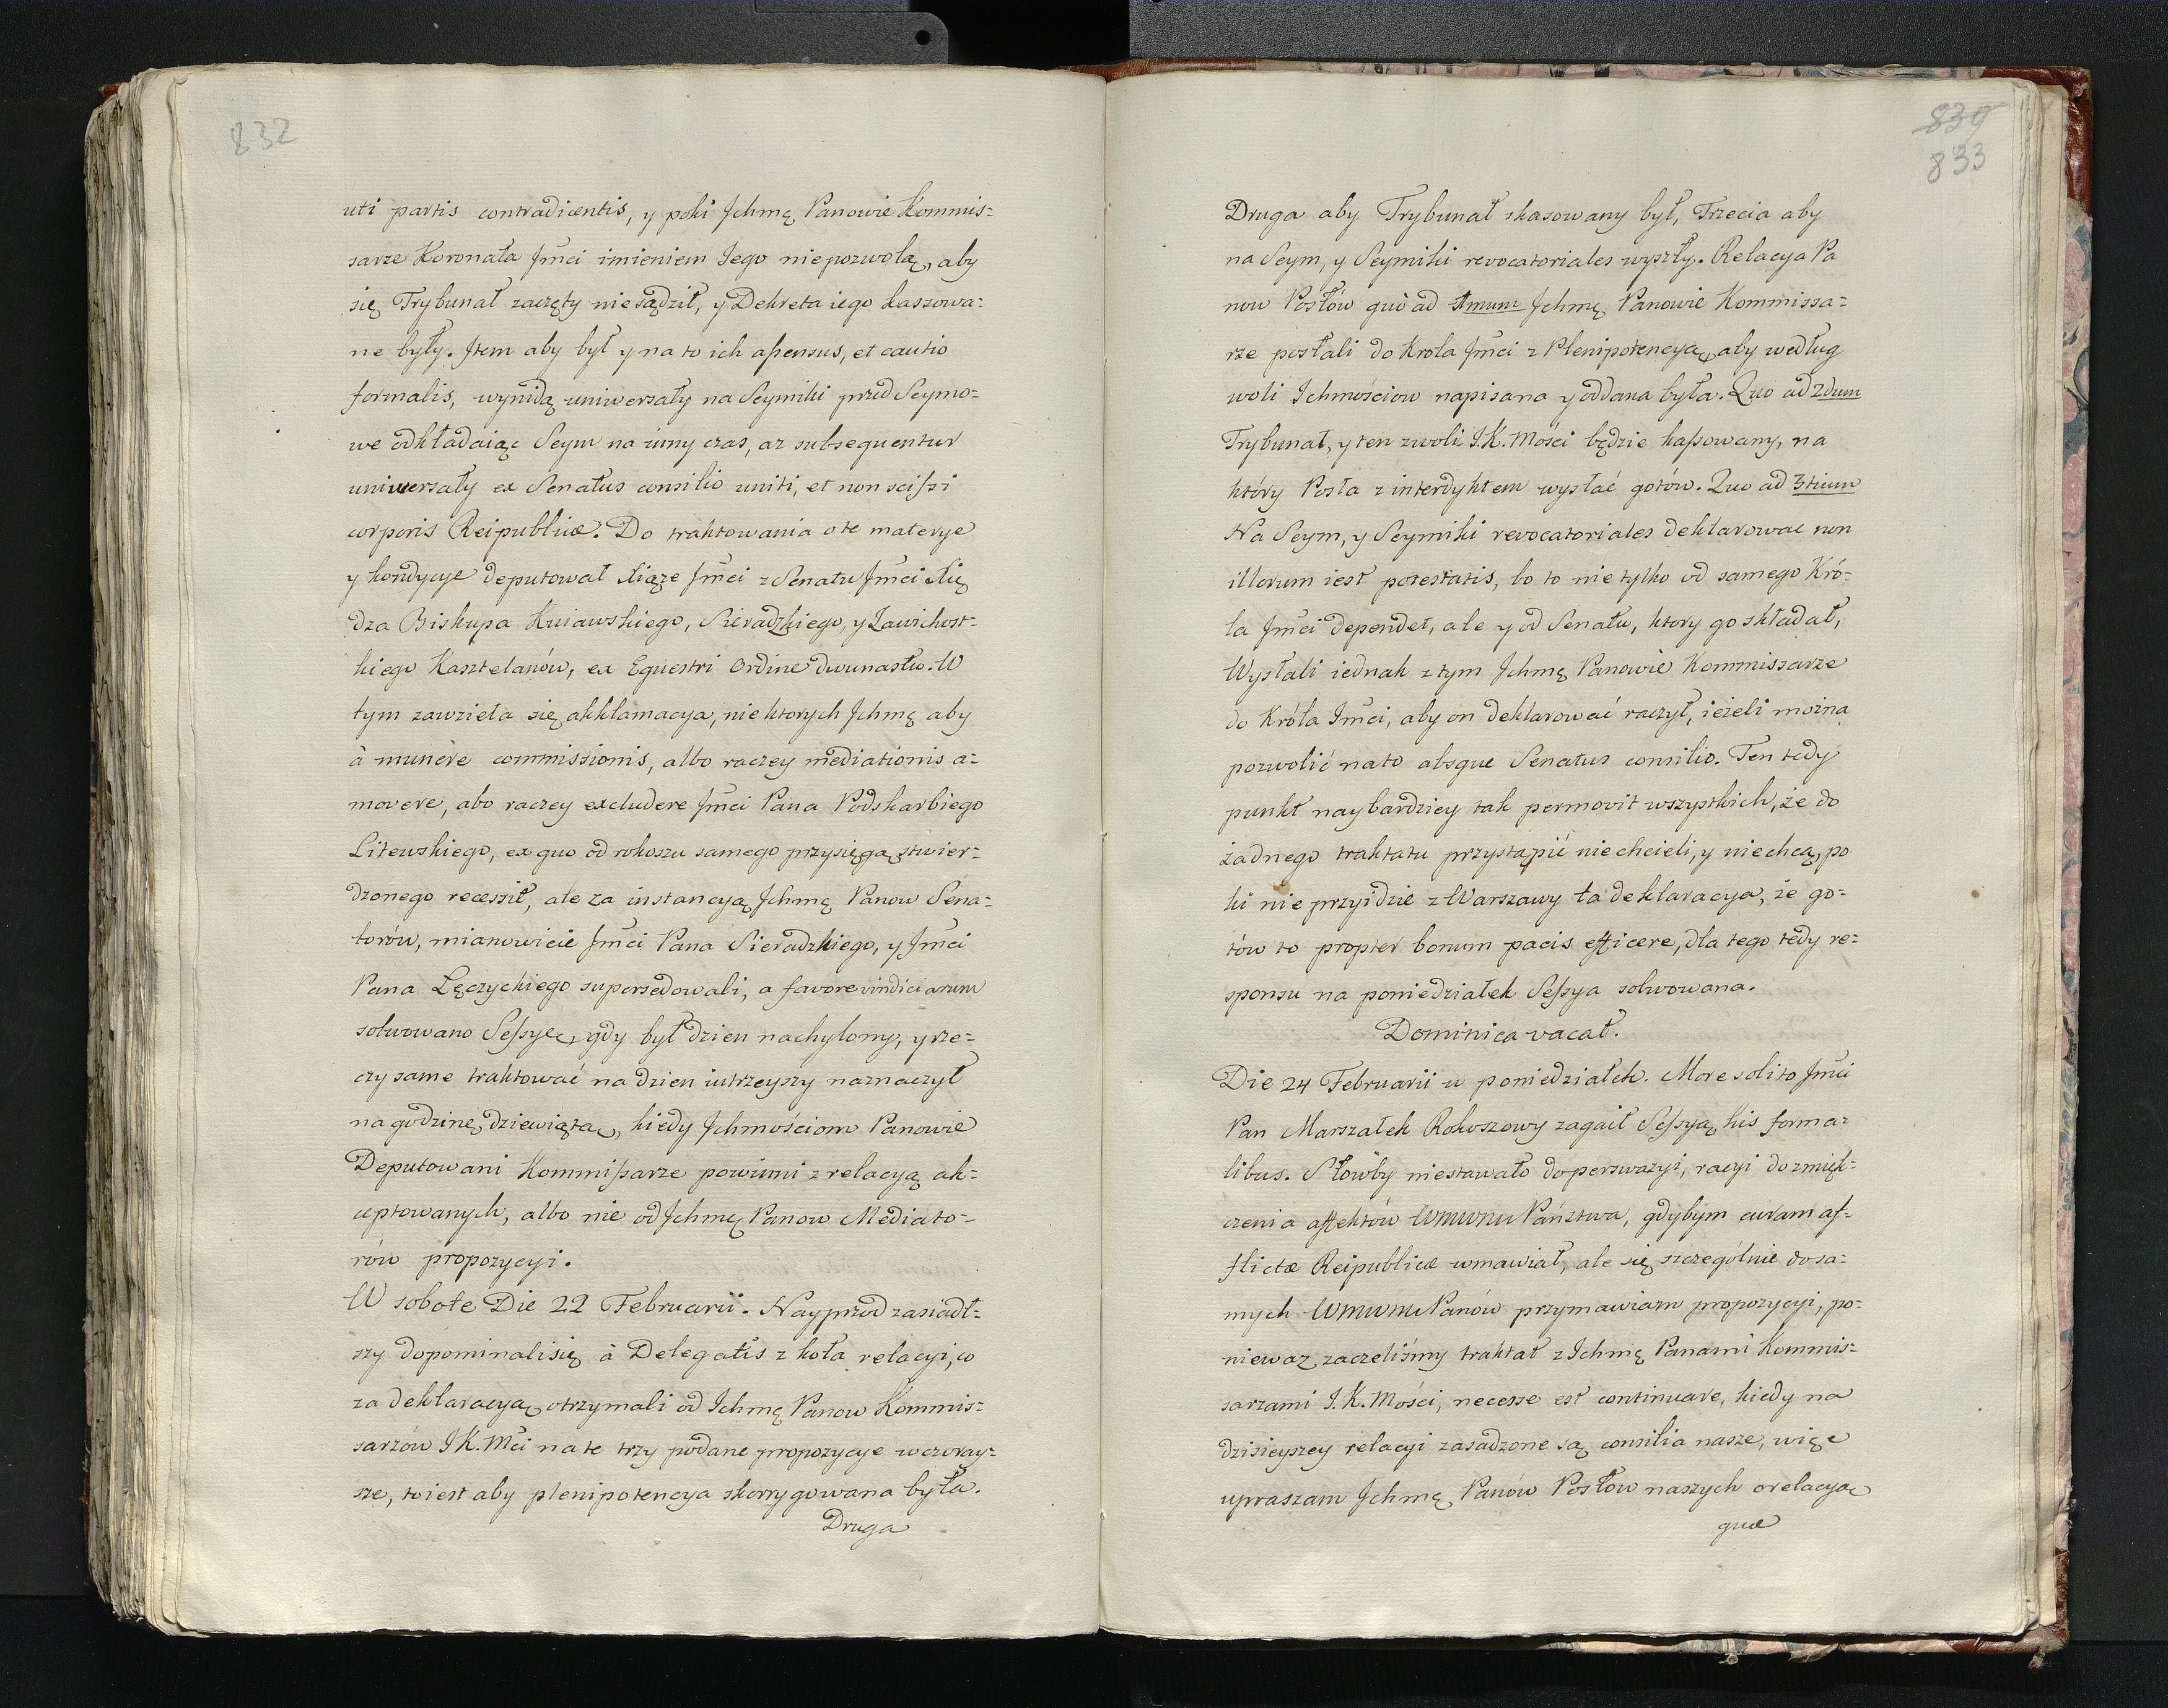 832
uti partis contradicentis, y poki Jchmę Panowie Kommis=
sarze Koronata Jmci imieniem Jego niepozwolą, aby
się Trybunał zaczęty nie sądził, y Dekreta iego kaszowa=
ne były. Jtem aby był y na to ich assensus, et cautio
formalis, wynidą uniwersały na Seymiki przed Seymo=
we odkładaiąc Seym na inny czas, az subsequentur
uniwersały ex Senatus consilio uniti, et non scissi
corporis Reipublicæ. Do traktowania o te materye
y kondycye deputował Xiąze Jmci z Senatu Jmci Xię
dza Biskupa Kuiawskiego, Sieradzkiego, y Zawichost=
kiego Kasztelanów, ex Equestri Ordine dwunastu. W
tym zawzieła się akklamacya, niektorych Jchmę aby
à munere commissionis, albo raczey mediationis a=
movere, abo raczey excludere Jmci Pana Podskarbiego
Litewskiego, ex quo od rokoszu samego przysięgą stwier=
dzonego recessit, ale za instancyą Jchmę Panow Sena=
torów, mianowicie Jmci Pana Sieradzkiego, y Jmci
Pana Lęczyckiego supersedowali, a favore vindiciarum
solwowano Sessyę, gdy był dzien nachylony, y rze=
czy same traktować na dzien iutrzeyszy naznaczył
na godzinę dziewiątą, kiedy Jchmościom Panowie
Deputowani Kommissarze powinni z relacyą ak=
ceptowanych, albo nie od Jchmę Panow Mediato=
rów propozycyi.
W sobote Die 22 Februarii. Nayprzod zasiadł=
szy dopominalisię à Delegatis z koła relacyi, co
za deklaracyą otrzymali od Jchmę Panow Kommis=
sarzów JK. Mci na te trzy podane propozycye wczoray=
sze, to iest aby plenipotencya skorrygowana była.
Druga
839
833
Druga aby Trybunał skasowany był, Trzecia aby
na Seym, y Seymiki revocatoriales wyszły. Relacya Pa
now Posłów quò ad 1mum Jchmę Panowie Kommissa=
rze posłali do Krola Jmci z Plenipotencyą, aby według
woli Jchmościow napisana y oddana była. Quo ad 2dum
Trybunał, y ten z woli J.K. Mości będzie kassowany, na
który Posła z interdyktem wysłać gotów. Quo ad 3tium
Na Seym, y Seymiki revocatoriales deklarowac non
illorum iest potestatis, bo to nie tylko od samego Kró=
la Jmci dependet, ale y od Senatu, ktory go składał,
Wysłali iednak z tym Jchmę Panowie Kommissarze
do Króla Jmci, aby on deklarować raczył, ieżeli można
pozwolić na to absque Senatus consilio. Ten tedy
punkt naybardziey tak permovit wszystkich, że do
żadnego traktatu przystąpić niechcieli, y niechcą, po
ki nie przyidzie z Warszawy ta deklaracya, że go=
tów to propter bonum pacis efficere, dla tego tedy re=
sponsu na poniedziałek Sessya solwowana.
Dominica vacat.
Die 24 Februarii w poniedziałek. More solito Jmci
Pan Marszałek Rokoszowy zagaił Sessyą his forma=
libus. Słowby niestawało do perswazyi, racyi do zmięk=
czenia affektów WmWmu Państwa, gdybym curam af=
flictæ Reipublicæ wmawiał, ale się szczególnie do sa=
mych WmWmu Panów przymawiam propozycyi, po=
niewaz zaczeliśmy traktat z Jchmę Panami Kommis=
sarzami J.K. Mości, necesse est continuare, kiedy na
dzisieyszey relacyi zasadzone są consilia nasze, więc
upraszam Jchmę Panów Posłow naszych o relacyą
quæ